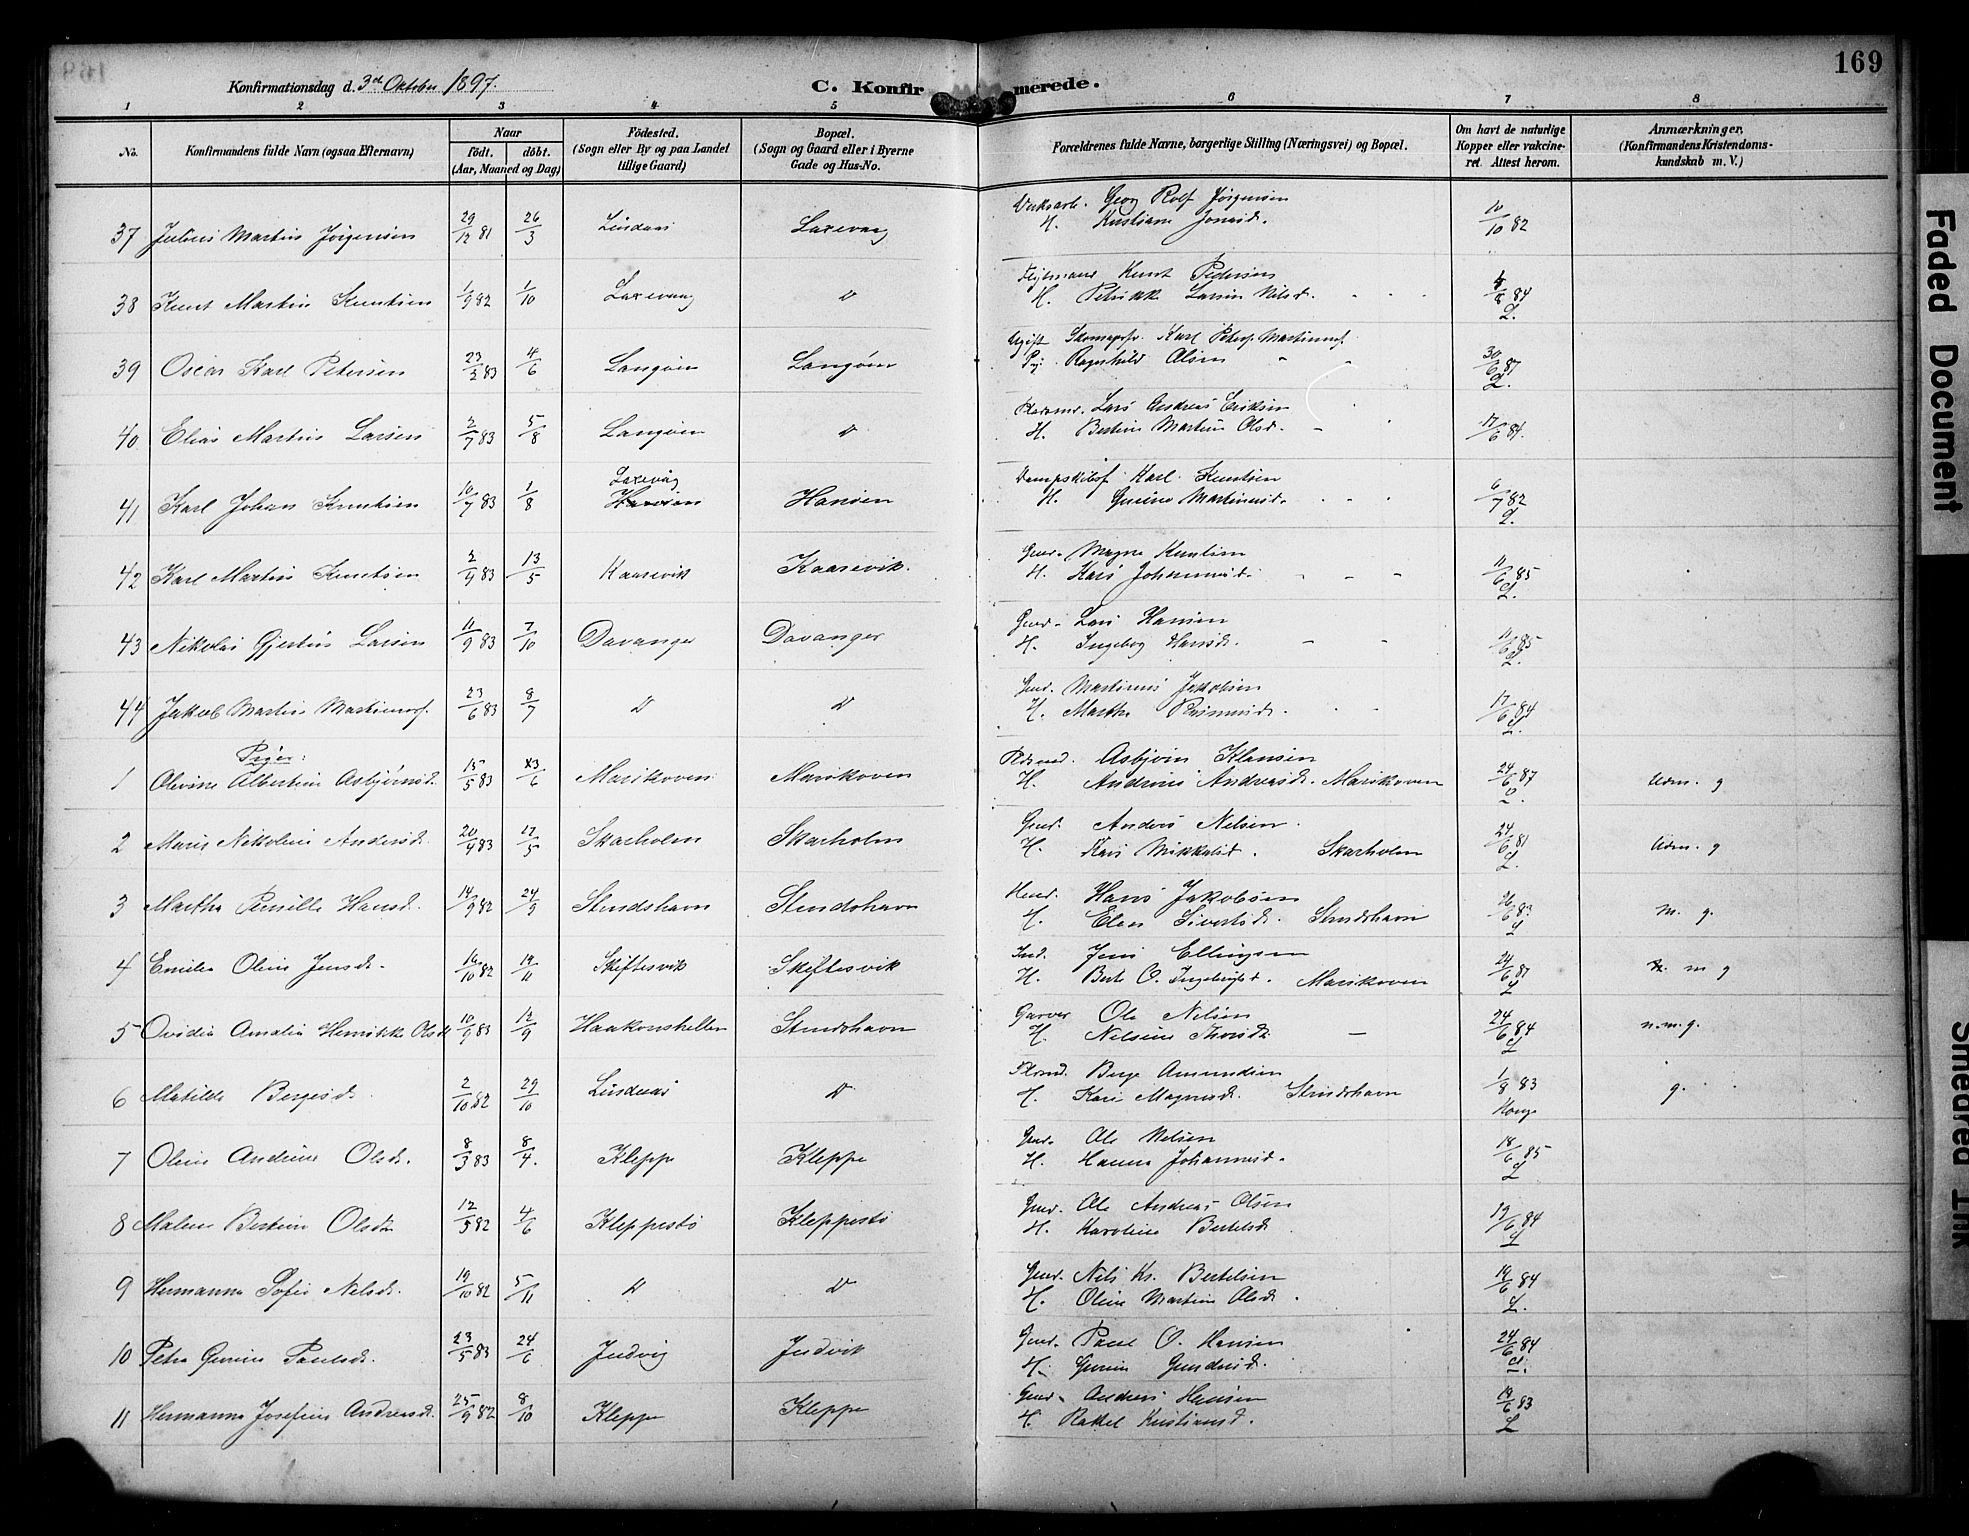 169
Konfirmationsdag d. 3d Oktober 1897.
C. Konfirmerede.
1 2 3 4 5 6 7 8
No. Konfirmandens fulde Navn (ogsaa Efternavn) Naar født. døbt. (Aar, Maaned og Dag) Fødested. (Sogn eller By og paa Landet tillige Gaard) Bopæl. (Sogn og Gaard eller i Byerne Gade og Hus-No. Forældrenes fulde Navne, borgerlige Stilling (Næringsvei) og Bopæl. Om havt de naturlige Kopper eller vakcineret. Attest herom. Anmærkninger, (Konfirmandens Kristendomskundskab m. V.)
37 Julius Martin Jörgensen 29/12 81 26/3 Lindaas Laxevaag Georg Rolf Jörgensen
H. Kristiane 10/10 82
38 Knut Martin Knutsen 1/9 82 1/10 Laxevaag D Knut Pedersen
H. Petrikke Larsine Nilsd. 84
39 Oscar Karl Petersen 23/2 83 4/6 Langöen Langöen Ugift Karl Peter Martinusf.
Pij. Ragnhild Olsen 30/6 87
40 Elias Martin Larsen 2/7 83 5/8 Langöen D Lars Andreas Eriksen
H. Bertine Martine Olsd. 17/6 84.
41 Karl Johan Knutsen 10/7 83 1/8 Laxevåg Hanöen Hanöen Karl Knutsen
H. Gurine Martinusd. 6/7 82
42 Karl Martin Knutsen 2/4 83 13/5 Kaarevik Kaarevik. Gmd. Magne Knutsen
H. Kari Johannesd. 11/6 85
43 Nikolai Gjertin Larsen 11/9 83 7/10 Davanger Davanger Gmd. Lars Hansen
H. Ingeborg Hansd. 11/6 85
44 Jakob Martin Martinusf. 23/6 83 8/7 D D Gmd. Martinus Jakobsen
H. Martha Rasmusd. 17/6 84
Piger:
1 Olevine Albertine Asbjörnsd. 15/5 83 13/6 Marikoven Marikoven Asbjörn Klausen
H. Andrine Andreasd. Marikoven 24/6 87 Udm. g
2 Marie Nikoline Andersd. 20/4 83 17/5 Skarholm Skarholm Gmd. Anders Nilsen
H. Kari Mikkelsd. Skarholm 24/6 81 Udm. g
3 Martha Pernille Hansd. 14/9 82 24/9 Strudshavn Strudshavn Hans Jakobsen
H. Elen Sivertsd. Strudshavn 26/6 83 M. g.
4 Emilie Oline Jensd. 16/10 82 19/11 Skiftesvik Skiftesvik Ind. Jens Ellingsen
H. Berte O. Ingebrigtsd. Marikoven 24/6 87 m g
5 Ovidia Amalia Henrikke Olsd. 10/9 83 12/9 Haakonshellen Strudshavn Garver Ole Nilsen
H. Nilsine 24/6 84 n.m.g.
6 Matilde Bergesd. 2/10 82 29/10 Lindaas D Berge Amundsen
H. Kari Magnusd. Strudshavn 1/8 83 g.
7 Oline Andrine Olsd. 8/3 83 8/4. Kleppe Kleppe Gmd. Ole Nilsen
H. Hanna Johannesd. 18/6 85
8 Malene Bertine Olsd. 12/5 82 4/6 Kleppestö Kleppestö Gmd. Ole Andreas Olsen
H. Karoline Bertelsd. 19/6 84
9 Hermanna Sofie Nilsd. 19/10 82 5/11 D D Gmd. Nils Kr. Bertelsen
H. Oline Martine Olsd. 19/6 84
10 Petra Gurine Paulsd. 23/5 83 24/6 Judvig Judvik Gmd. Paul O. Hansen
H. Gurine 24/6 84
11 Hermanna Josefine Andreasd. 25/9 82 8/10 Kleppe Kleppe Gmd. Andreas Hansen
H. Rakel Kristiansd. 19/6 83
Faded Document
Smeared Ink